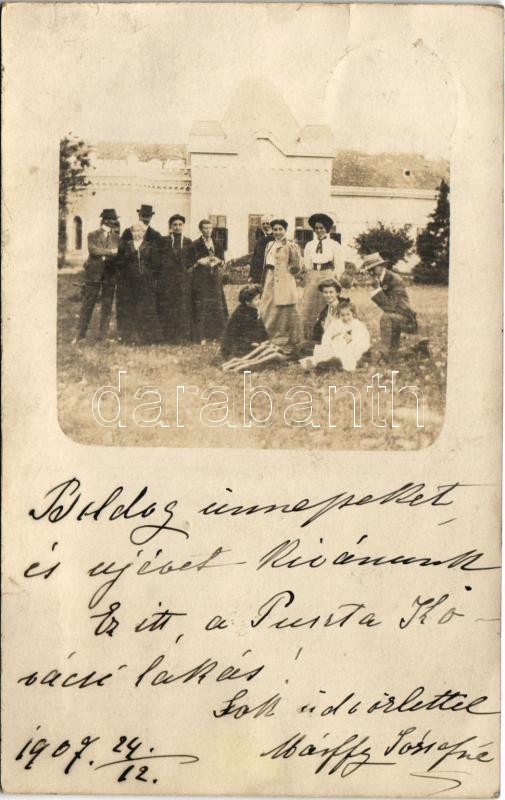 darabanth
Boldog ünnepeket,
és ujévet kivánunk
Ez itt, a Puszta Ko-
vácsi lakás!
Sok üdvözlettel
1907. 24./12. Márffy Józsefné